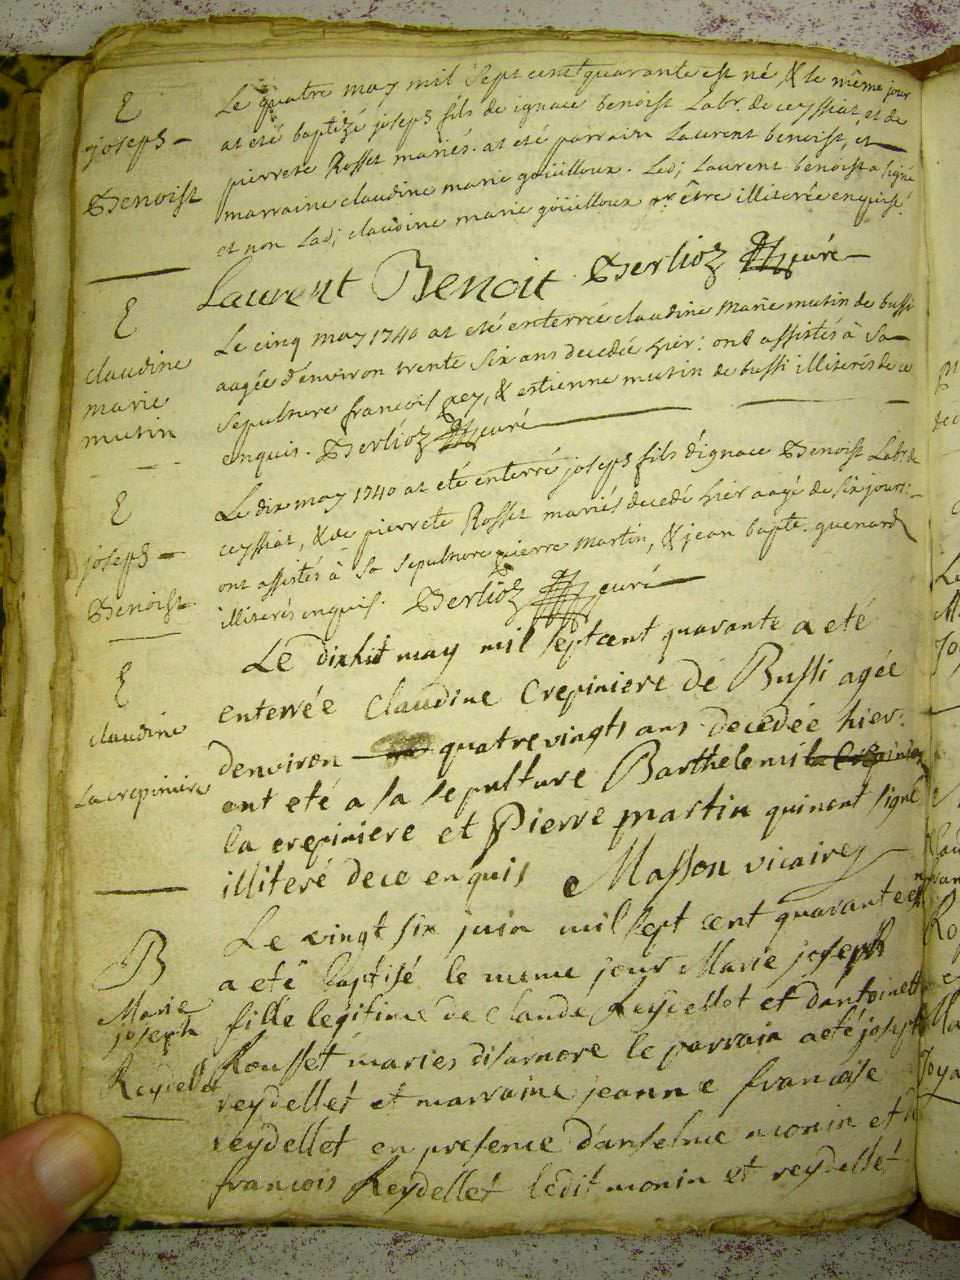 E
joseph
Benoist
Le quatre may mil sept cent quarante est né, & le même jour
at eté baptizé joseph fils de ignace benoist Labr. de ceyssiat et de
pierrete Rosset mariés. at eté parrain Laurent benoist, et
marraine claudine marie goüilloux. Led; Laurent benoist a signé
et non Lad; claudine marie goüilloux pr être illiterée enquise.
Laurent Benoit Berlioz curé
E
claudine
marie
mutin
Le cinq may 1740 at eté enterrée claudine marie mutin de bussi
aagée d'environ trente six ans decedée hier: ont assistés à sa
sepulture francois rey, & estienne mutin de bussi illiterés de ce
enquis. Berlioz curé
E
joseph
Benoist
Le dix may 1740 at eté enterré joseph fils d'ignace Benoist Labr. de
ceyssiat, & de pierrete Rosset mariés decedé hier aagé de six jours:
ont assistés à sa sepulture pierre Martin, & jean bapte. guenard
illiterés enquis. Berlioz curé
E
claudine
La crepiniere
Le dixhit may mil sept cent quarante a eté
enterrée Claudine Crepiniere de Bussi agée
denviron quatrevingts ans decedée hier.
ont eté a sa sepulture Barthelemi
la crepiniere et Pierre martin quinont signé
illiteré dece enquis Masson vicaire
B
Marie
joseph
Reydellet
Le vingt six juin mil sept cent quarante est
a eté baptisé le meme jour Marie joseph
fille legitime de Claude Reydellet et dantoinette
Rousset maries disarnore le parrain a eté joseph
reydellet et marraine jeanne francoise
reydellet en presence d'anselme monin et
francois Reydellet ledit monin et reydellet